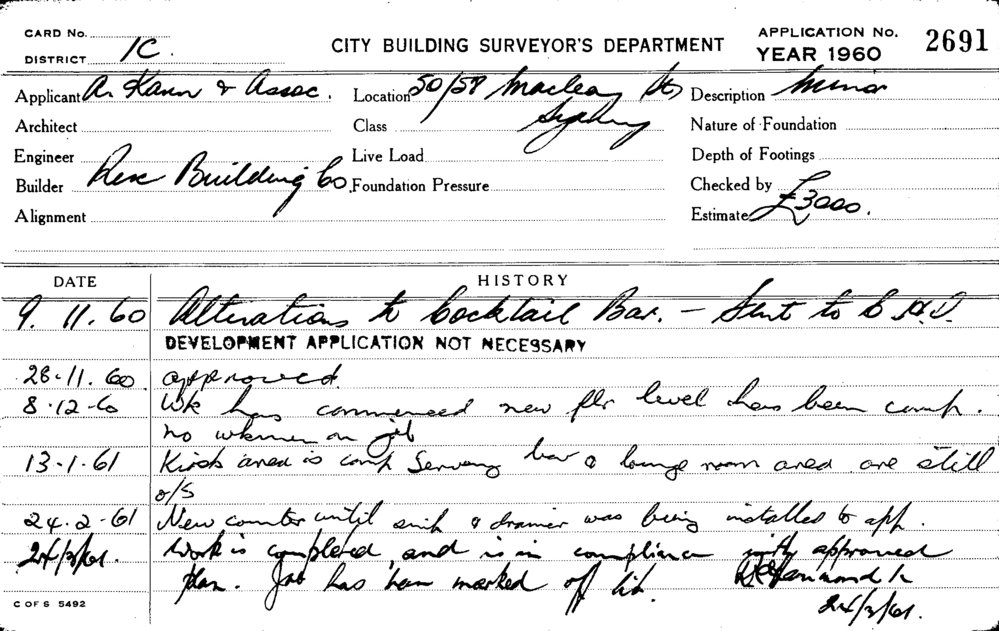 CARD No.
DISTRICT 1C.
CITY BUILDING SURVEYOR'S DEPARTMENT
APPLICATION No. 2691
YEAR 1960
Applicant A. Kann & Assoc. Location 50/58 Macleay St, Description Minor
Architect Class Sydney Nature of Foundation
Engineer Live Load Depth of Footings
Builder Rex Building Co. Foundation Pressure Checked by
Alignment Estimate £3000.
DATE HISTORY
9.11.60 Alterations to Cocktail Bar. - Sent to
DEVELOPMENT APPLICATION NOT NECESSARY
28.11.60 approved.
8.12.60 Wk has commenced new flr level has been comp.
no wkmen on job
13.1.61 Kiosk area is comp Serving bar & lounge room area are still
o/s
24.2.61 New counter until sink & drainer was being installed to app.
24/3/61. Work is completed and is in compliance with approved
plan. Job has been marked off list.
24/3/61.
C OF S 5492